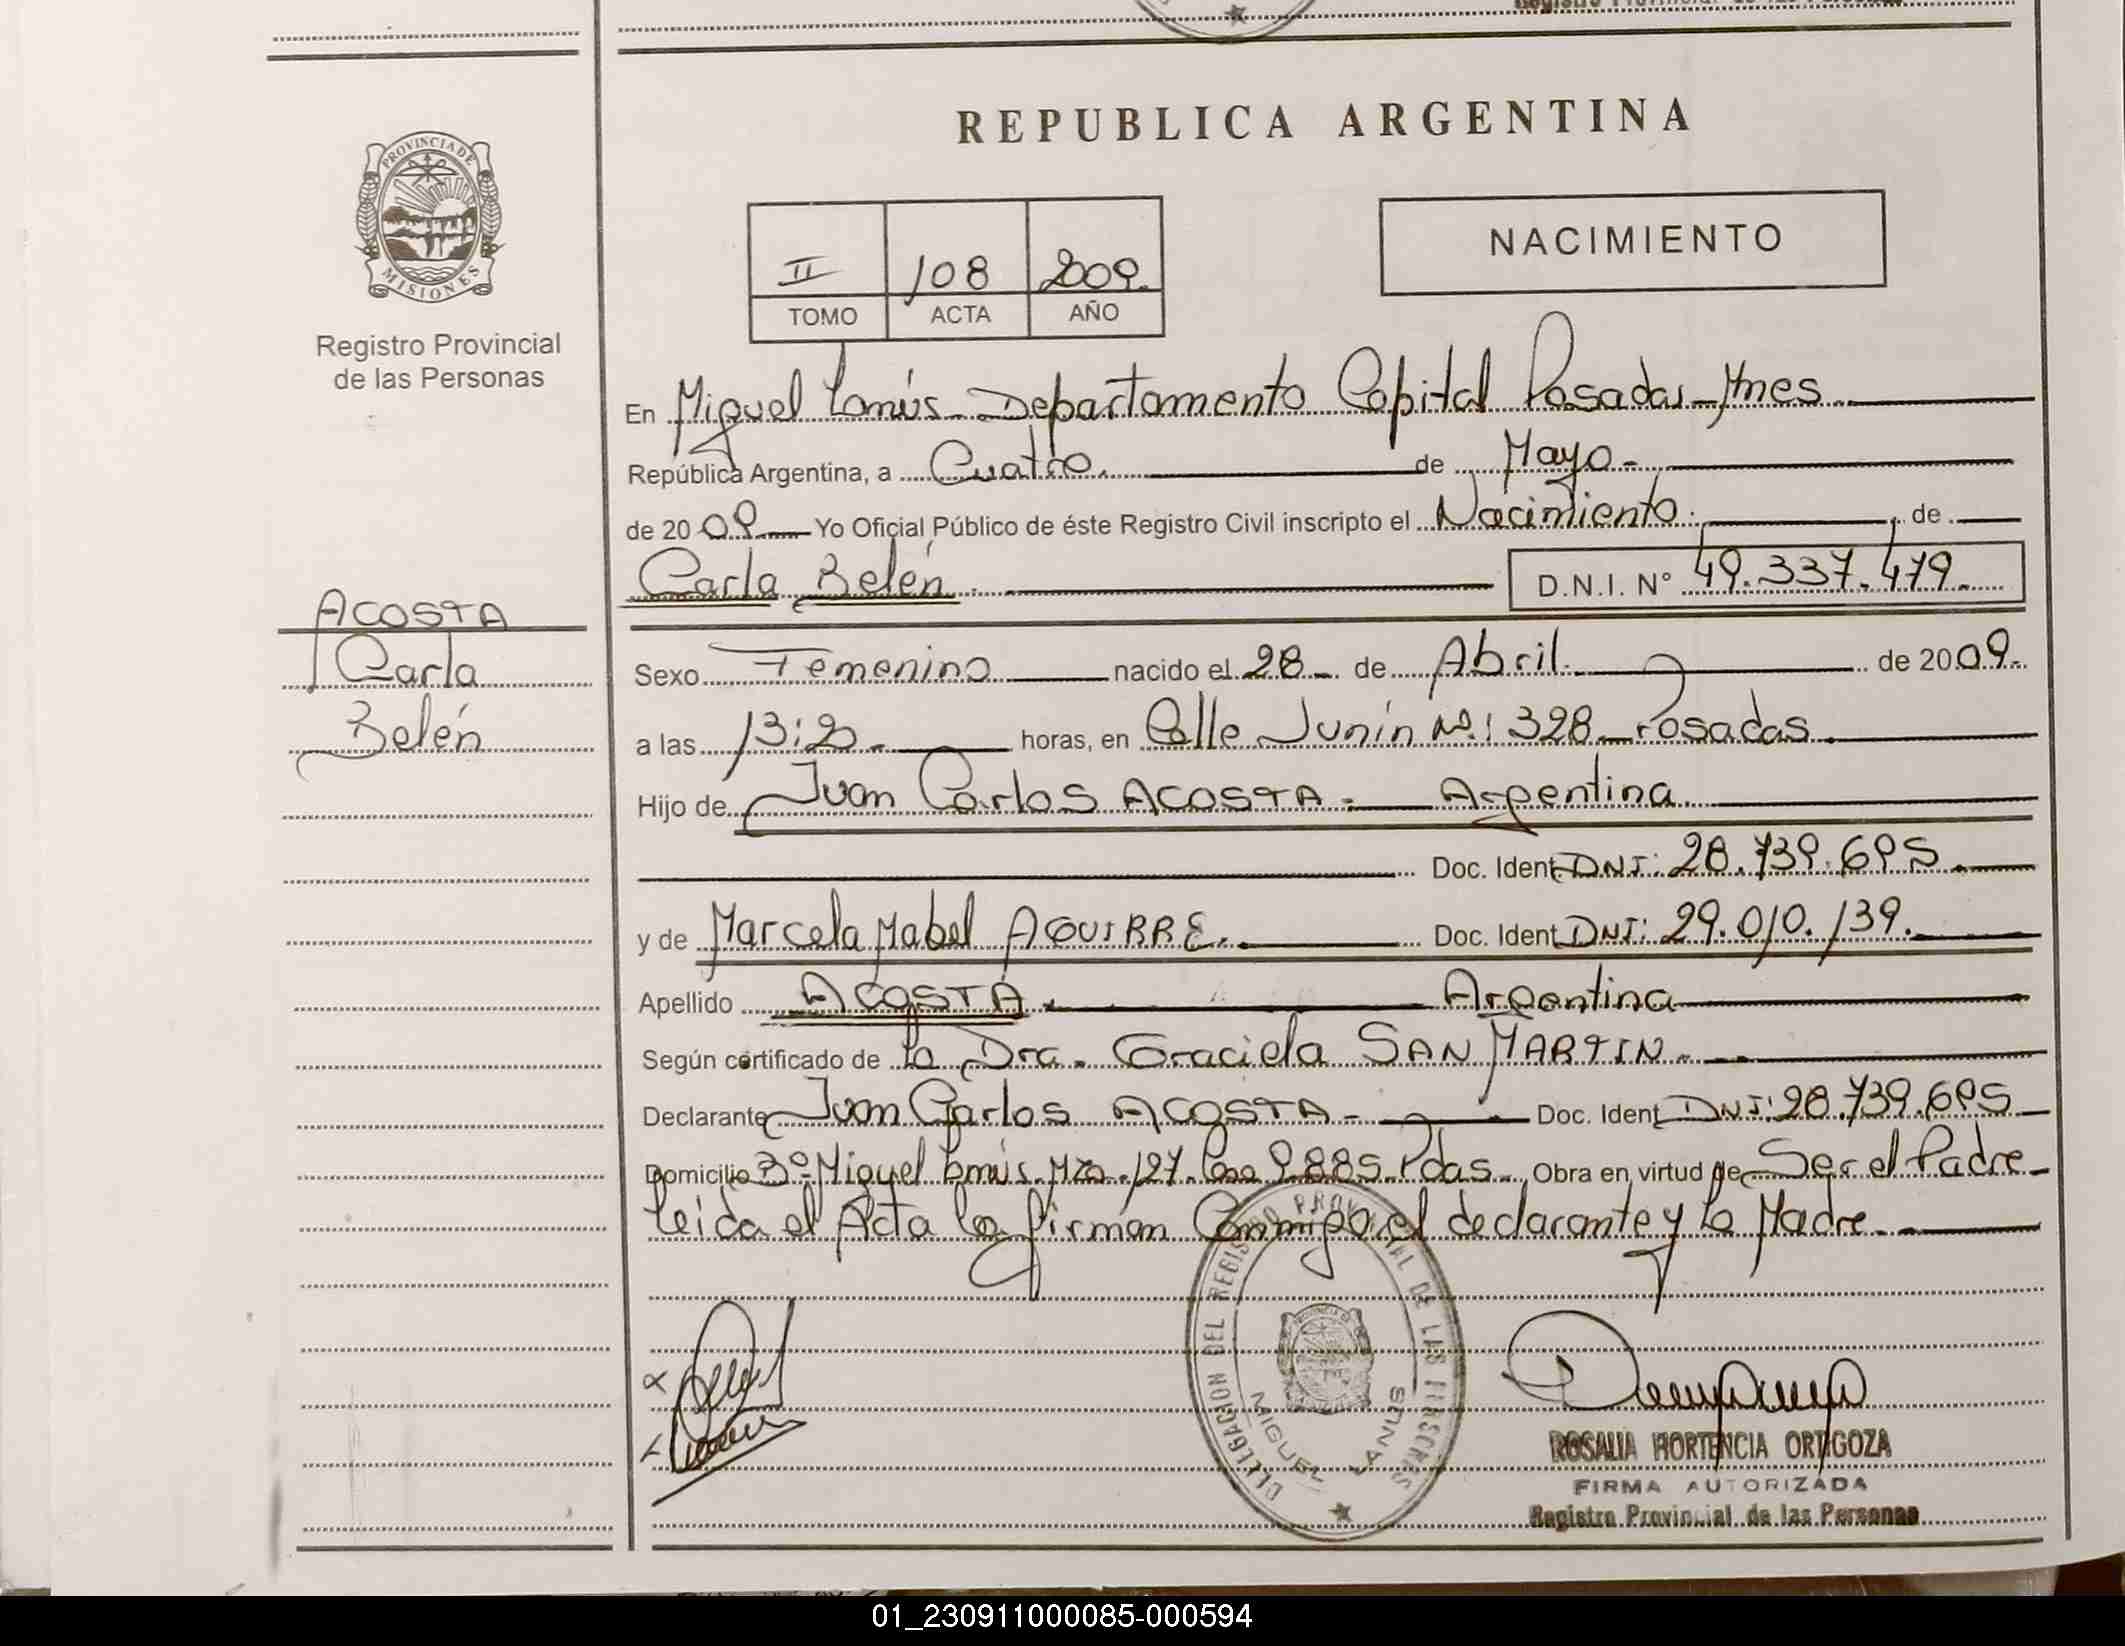 REPUBLICA ARGENTINA
PROVINCIA DE
MISIONES
Registro Provincial
de las Personas
II 108 2009.
TOMO ACTA AÑO
NACIMIENTO
En Miguel Lanús - Departamento Capital Posadas - Mnes
República Argentina, a Cuatro. de Mayo -
de 2009 Yo Oficial Público de éste Registro Civil inscripto el Nacimiento. de
Carla Belén. D.N.I. N° 49.337.479.
ACOSTA
Carla
Belén
Sexo Femenino nacido el 28 de Abril. de 2009.
a las 13:20. horas, en Calle Junín Nº: 328 - Posadas.
Hijo de Juan Carlos ACOSTA - Argentina.
Doc. Ident. DNI: 28.739.695.
y de Marcela Mabel AGUIRRE. Doc. Ident. DNI: 29.010.139.
Apellido ACOSTA. Argentina
Según certificado de la Dra. Graciela SAN MARTIN.
Declarante Juan Carlos ACOSTA - Doc. Ident. DNI: 28.739.695
Domicilio Bº Miguel Lanús. Mza. 127. Casa 9885 Pdas. Obra en virtud de Ser el Padre
Leída el Acta la firman Conmigo el declarante y la Madre.
DELEGACION DEL REGISTRO PROVINCIAL DE LAS PERSONAS
MIGUEL LANUS
ROSALIA HORTENCIA ORTIGOZA
FIRMA AUTORIZADA
Registro Provincial de las Personas
01_230911000085-000594